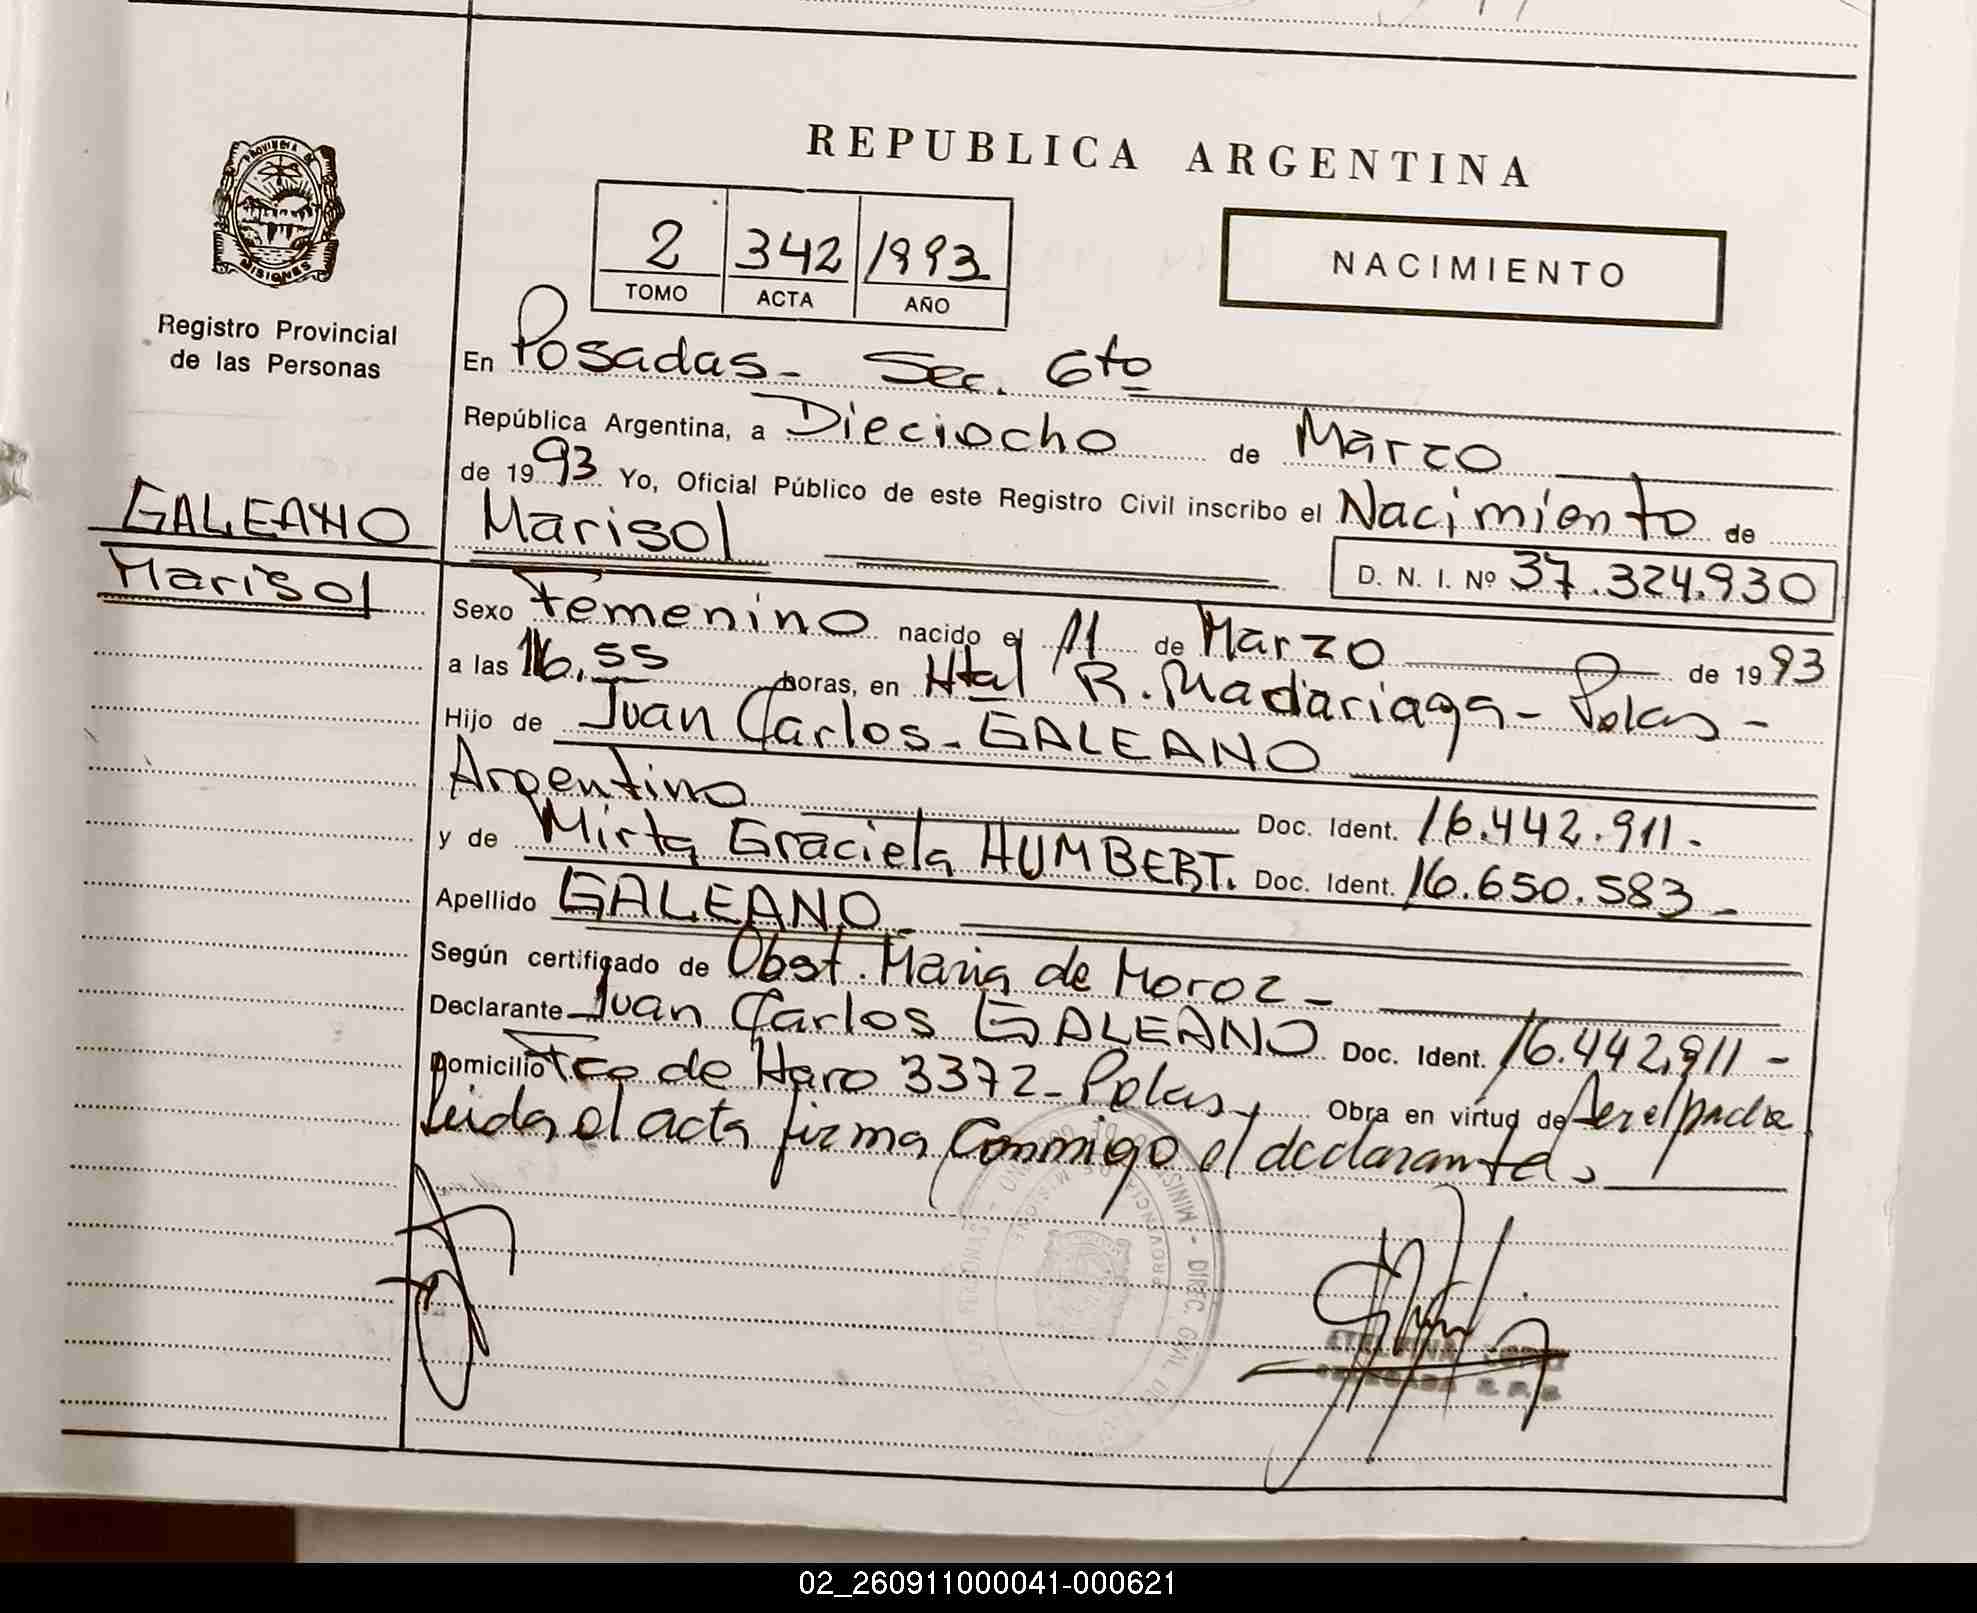 REPUBLICA ARGENTINA
PROVINCIA DE
MISIONES
Registro Provincial
de las Personas
2 342 1993
TOMO ACTA AÑO
NACIMIENTO
En Posadas - Sec. 6to
República Argentina, a Dieciocho de Marzo
de 1993 Yo, Oficial Público de este Registro Civil inscribo el Nacimiento de
GALEANO
Marisol
Marisol
D. N. I. Nº 37.324.930
Sexo Femenino nacido el 11 de Marzo de 1993
a las 16,55 horas, en Htal R. Madariaga - Pdas -
Hijo de Juan Carlos - GALEANO
Argentino Doc. Ident. 16.442.911 -
y de Mirta Graciela HUMBERT. Doc. Ident. 16.650.583 -
Apellido GALEANO
Según certificado de Obst. Maria de Moroz -
Declarante Juan Carlos GALEANO Doc. Ident. 16.442.911 -
Domicilio Fco de Haro 3372 - Pdas, Obra en virtud de ser el padre
Leida el acta firma conmigo el declarante.
MINIS - DIREC. GRAL. DE
PROVINCIA DE MISIONES
02_260911000041-000621